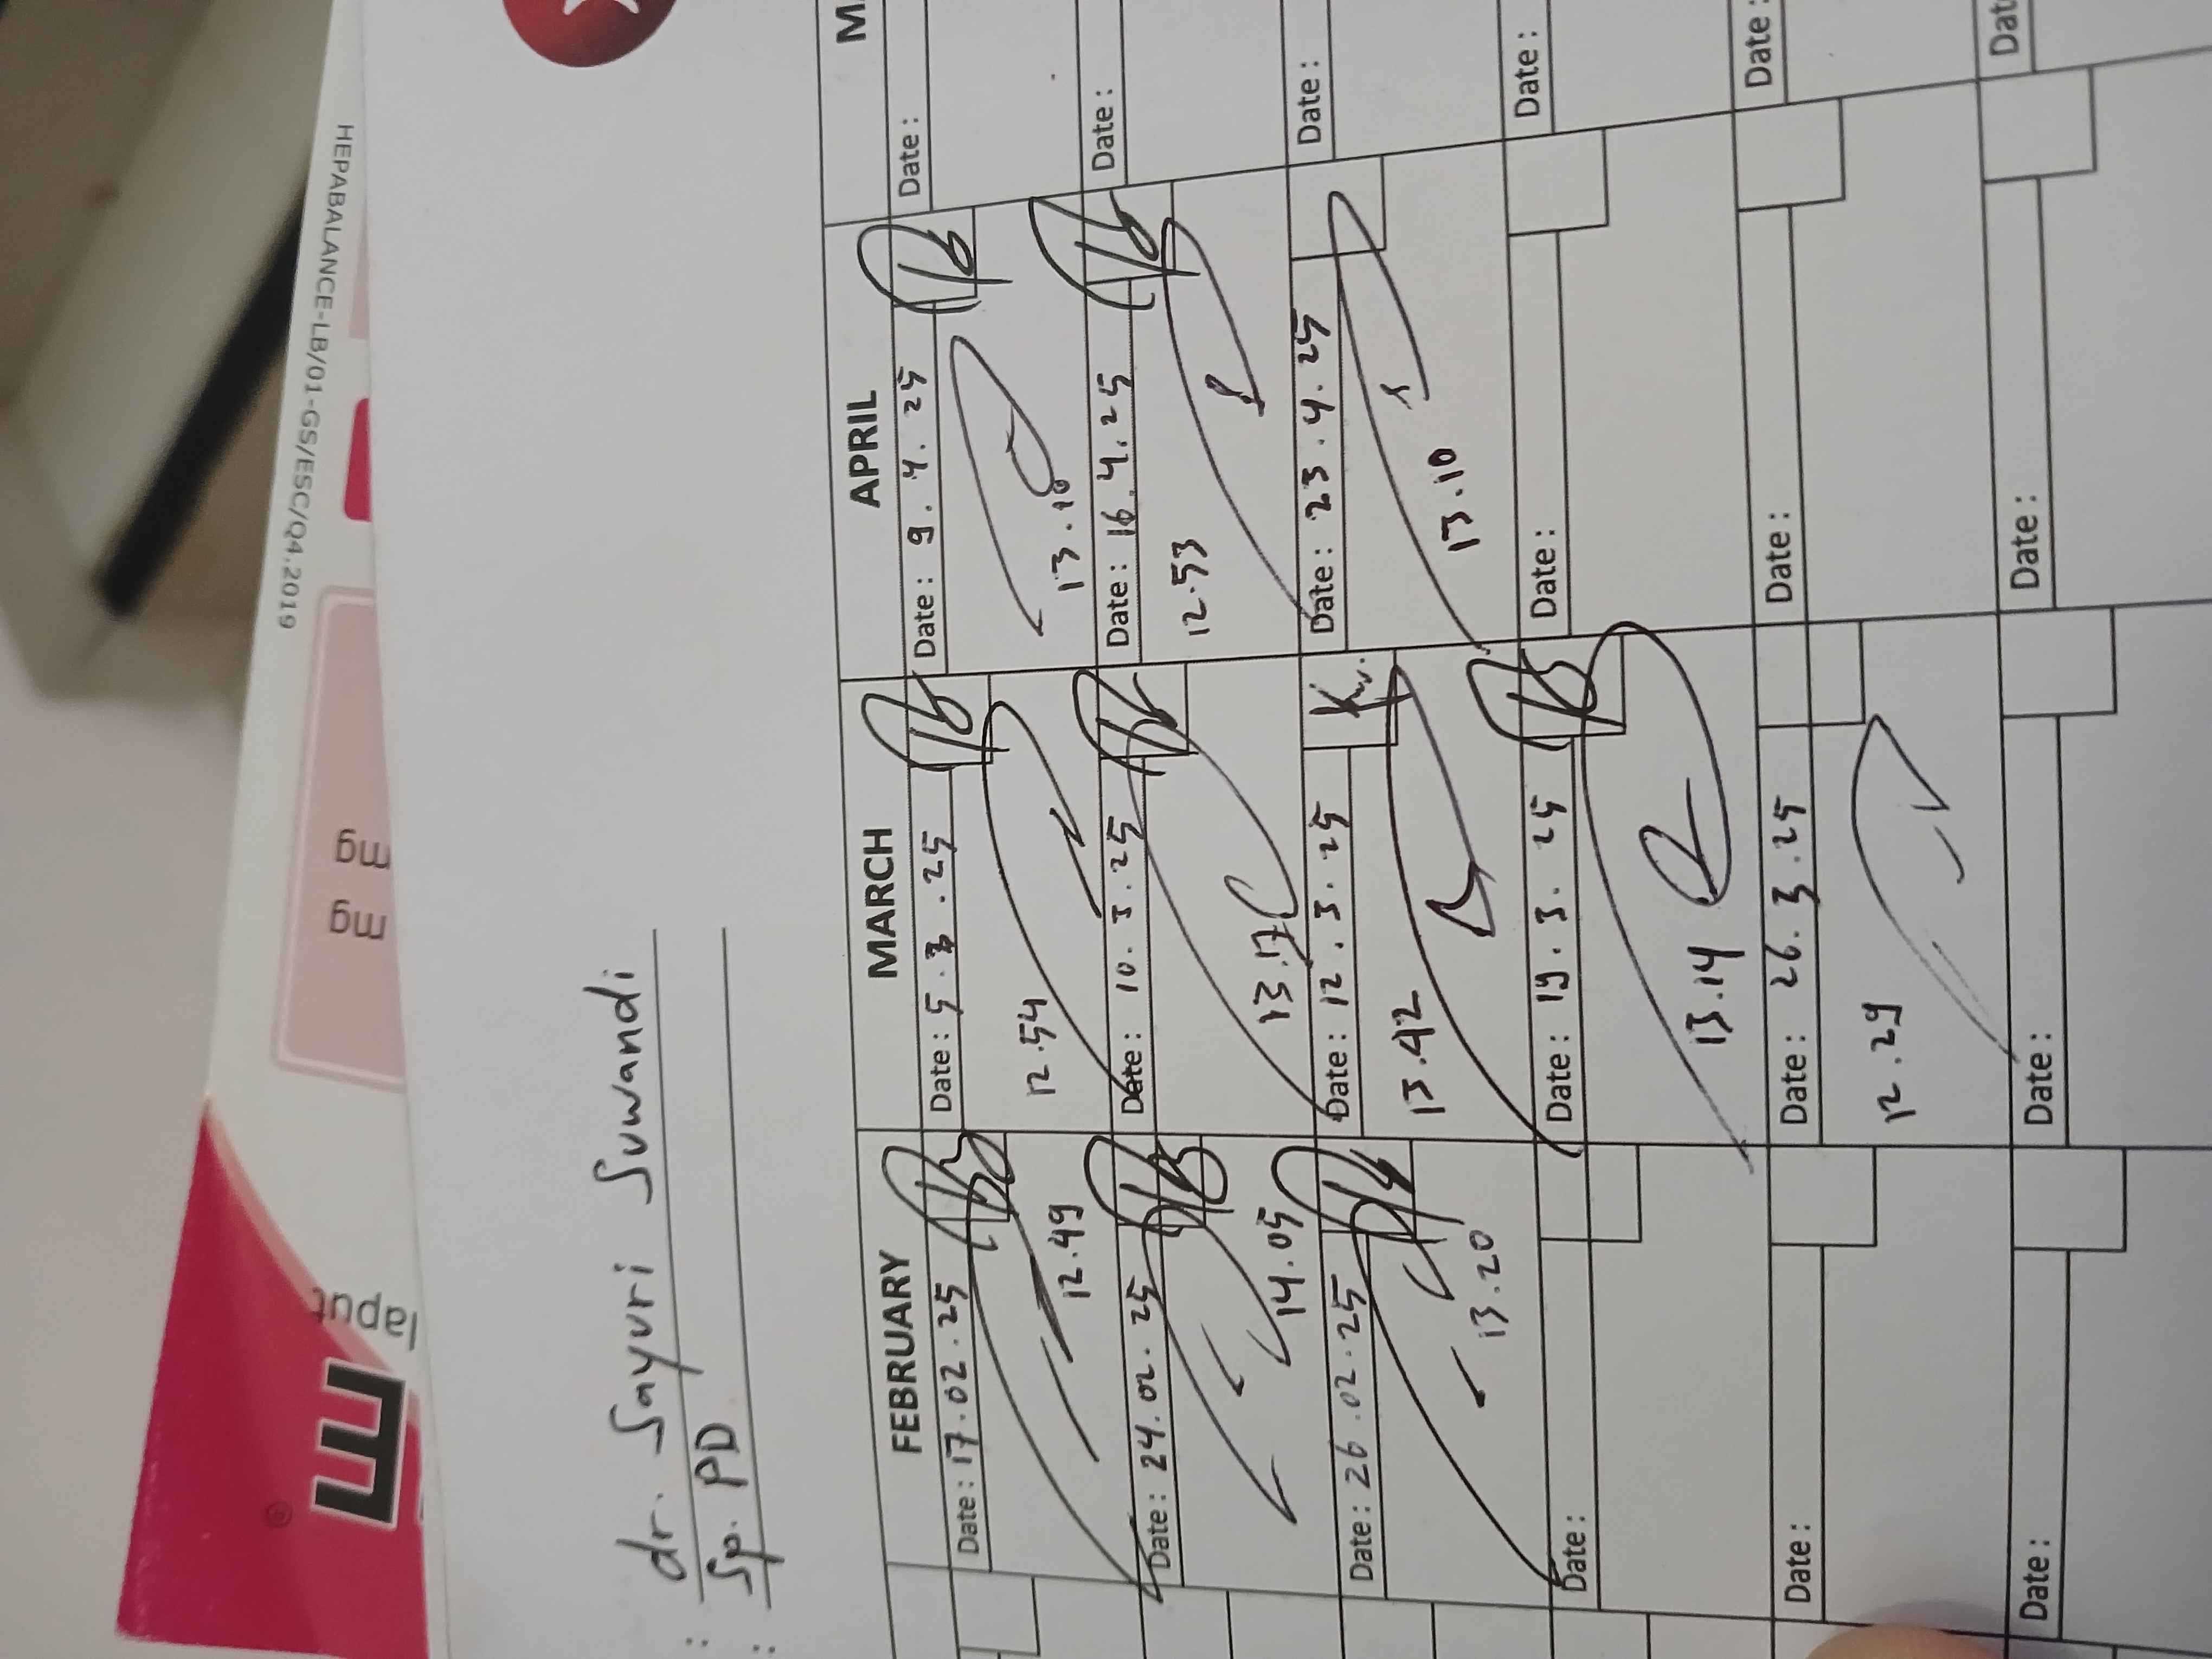 HEPABALANCE-LB/01-GS/ESC/Q4.2019
mg
mg
laput
m
®
: dr. Sayuri Suwandi
: Sp. PD
FEBRUARY MARCH APRIL
Date: 17.02.25 Date: 5.3.25 Date: 9.4.25 Date:
12.49 12.54 13.10
Date: 24.02.25 Date: 10.3.25 Date: 16.4.25 Date:
14.05 13.17 12.53
Date: 26.02.25 Date: 12.3.25 Date: 23.4.25 Date:
13.20 13.42 13.10
Date: Date: 19.3.25 Date: Date:
13.14
Date: Date: 26.3.25 Date: Date:
12.29
Date: Date: Date: